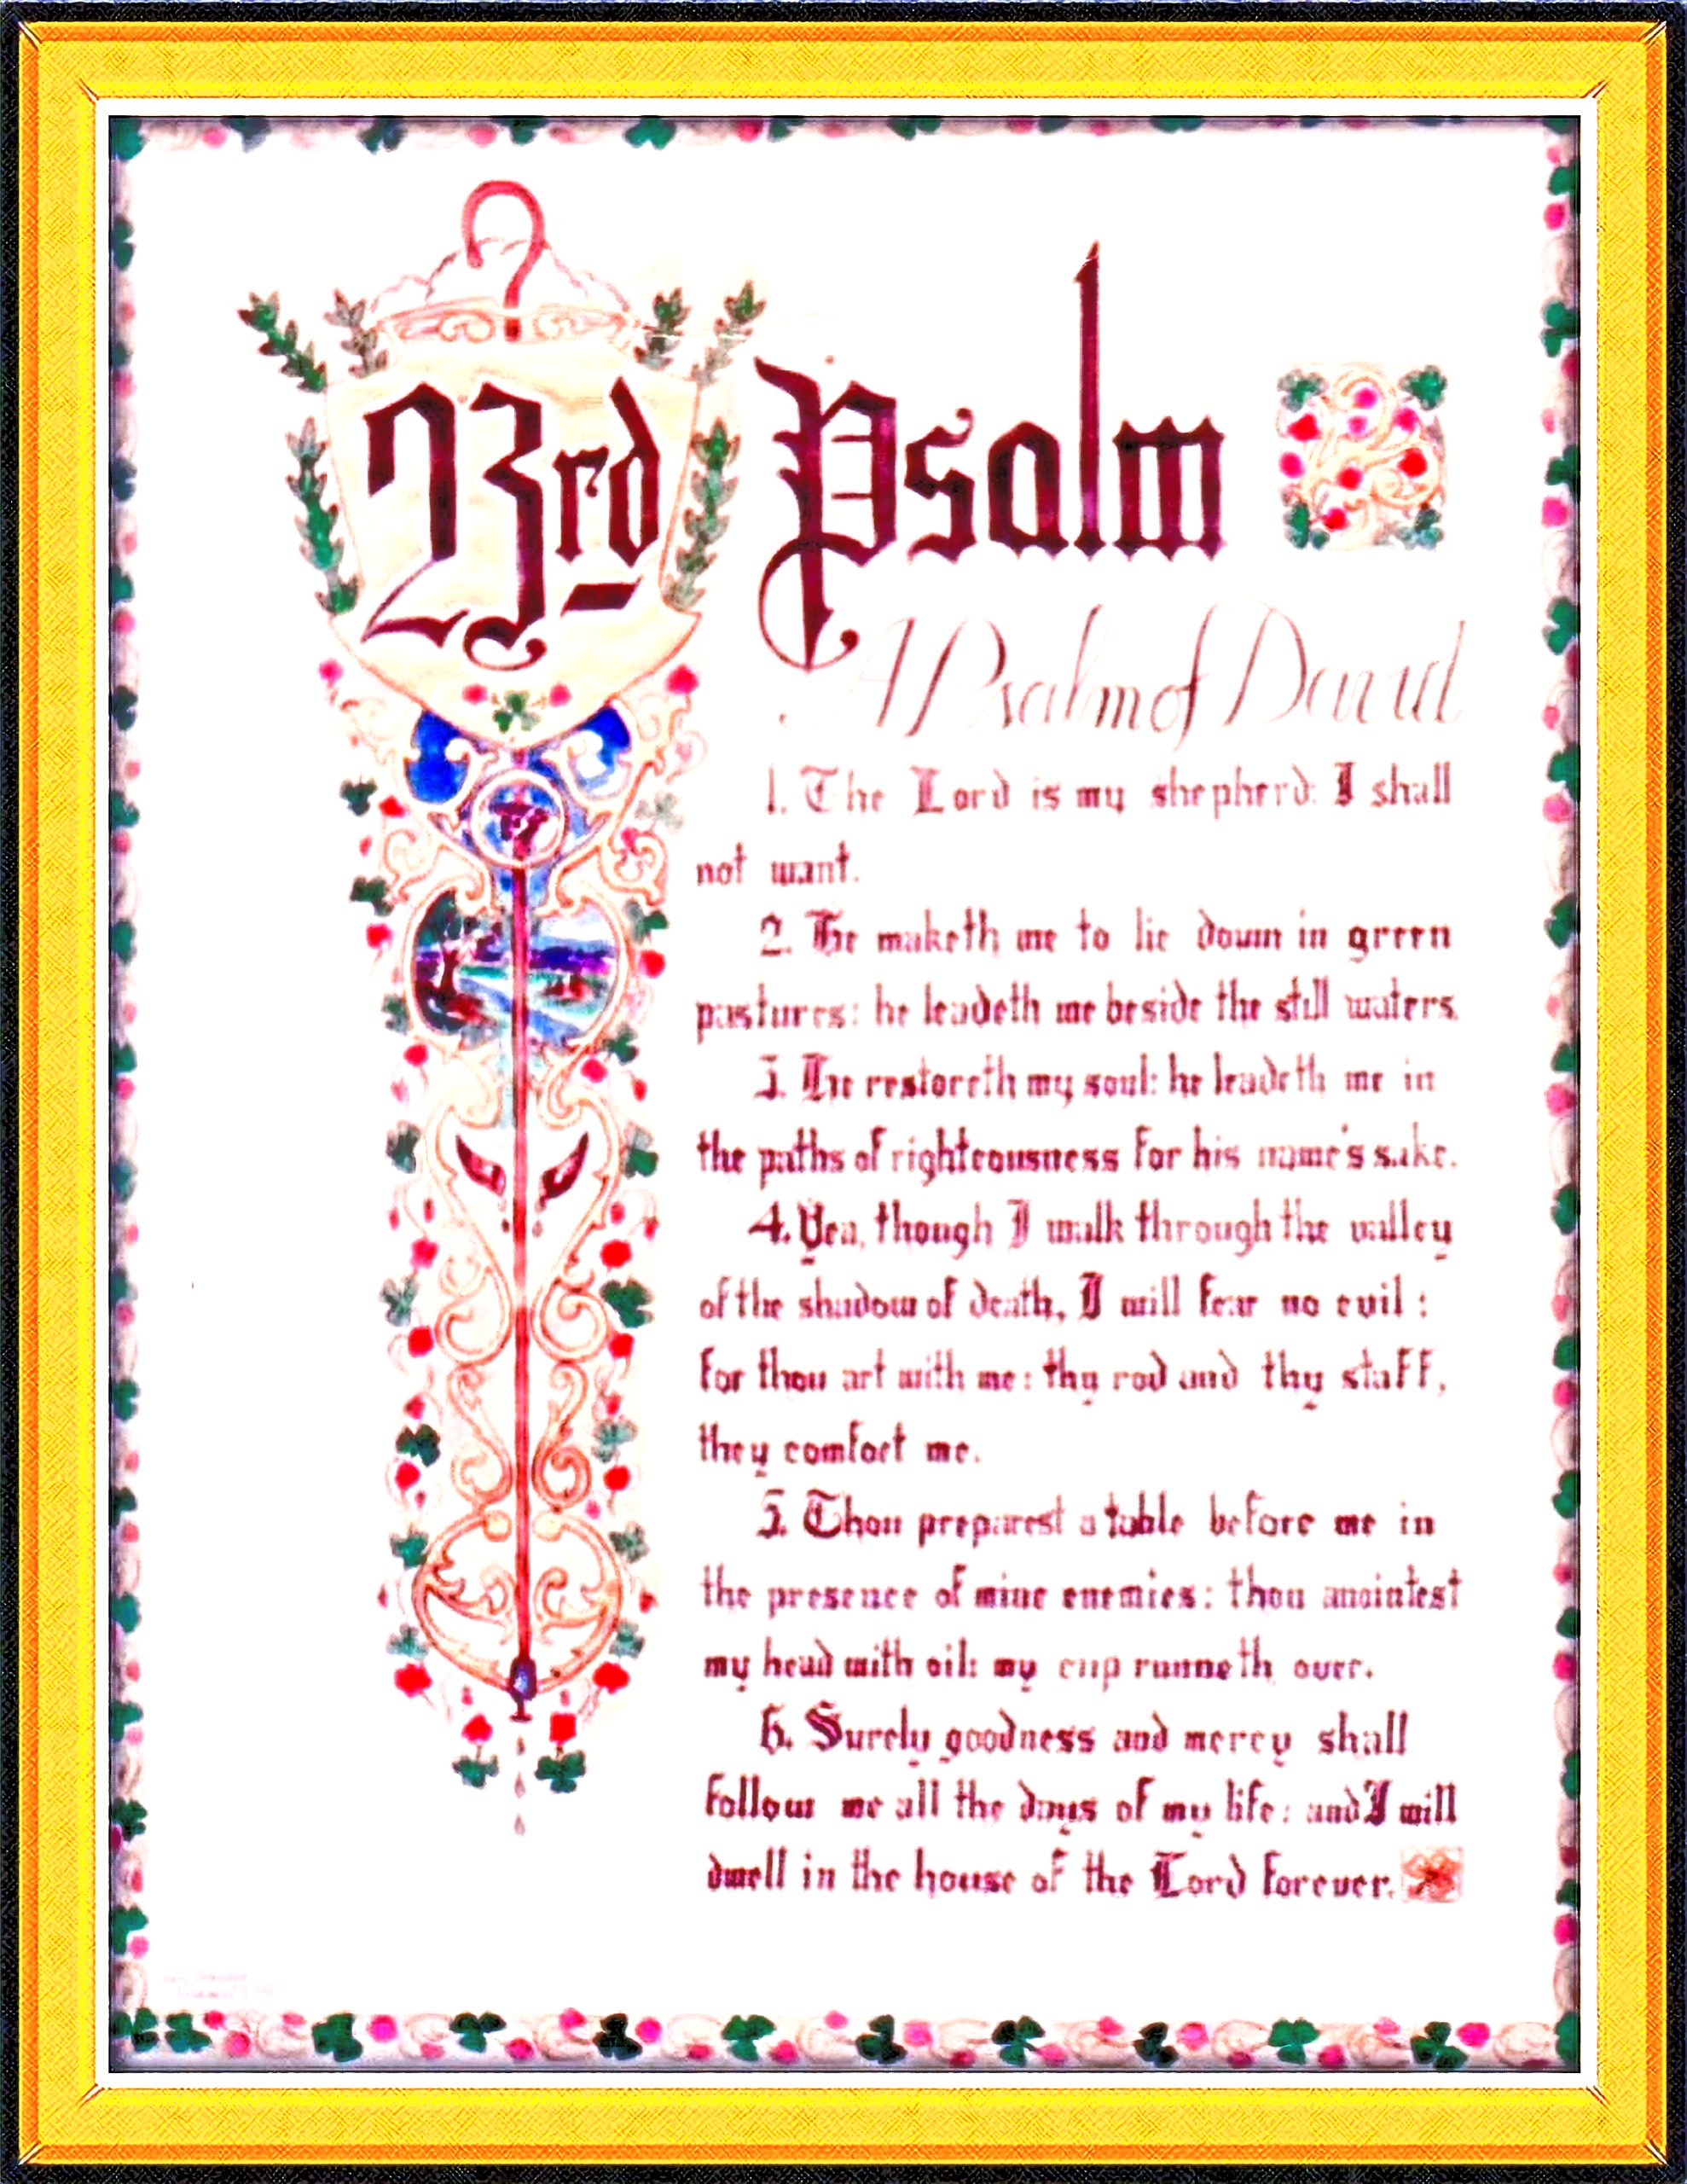 23rd Psalm
A Psalm of David
1. The Lord is my shepherd: I shall
not want.
2. He maketh me to lie down in green
pastures: he leadeth me beside the still waters.
3. He restoreth my soul: he leadeth me in
the paths of righteousness for his name's sake.
4. Yea, though I walk through the valley
of the shadow of death, I will fear no evil:
for thou art with me: thy rod and thy staff,
they comfort me.
5. Thou preparest a table before me in
the presence of mine enemies: thou anointest
my head with oil: my cup runneth over.
6. Surely goodness and mercy shall
follow me all the days of my life: and I will
dwell in the house of the Lord forever.